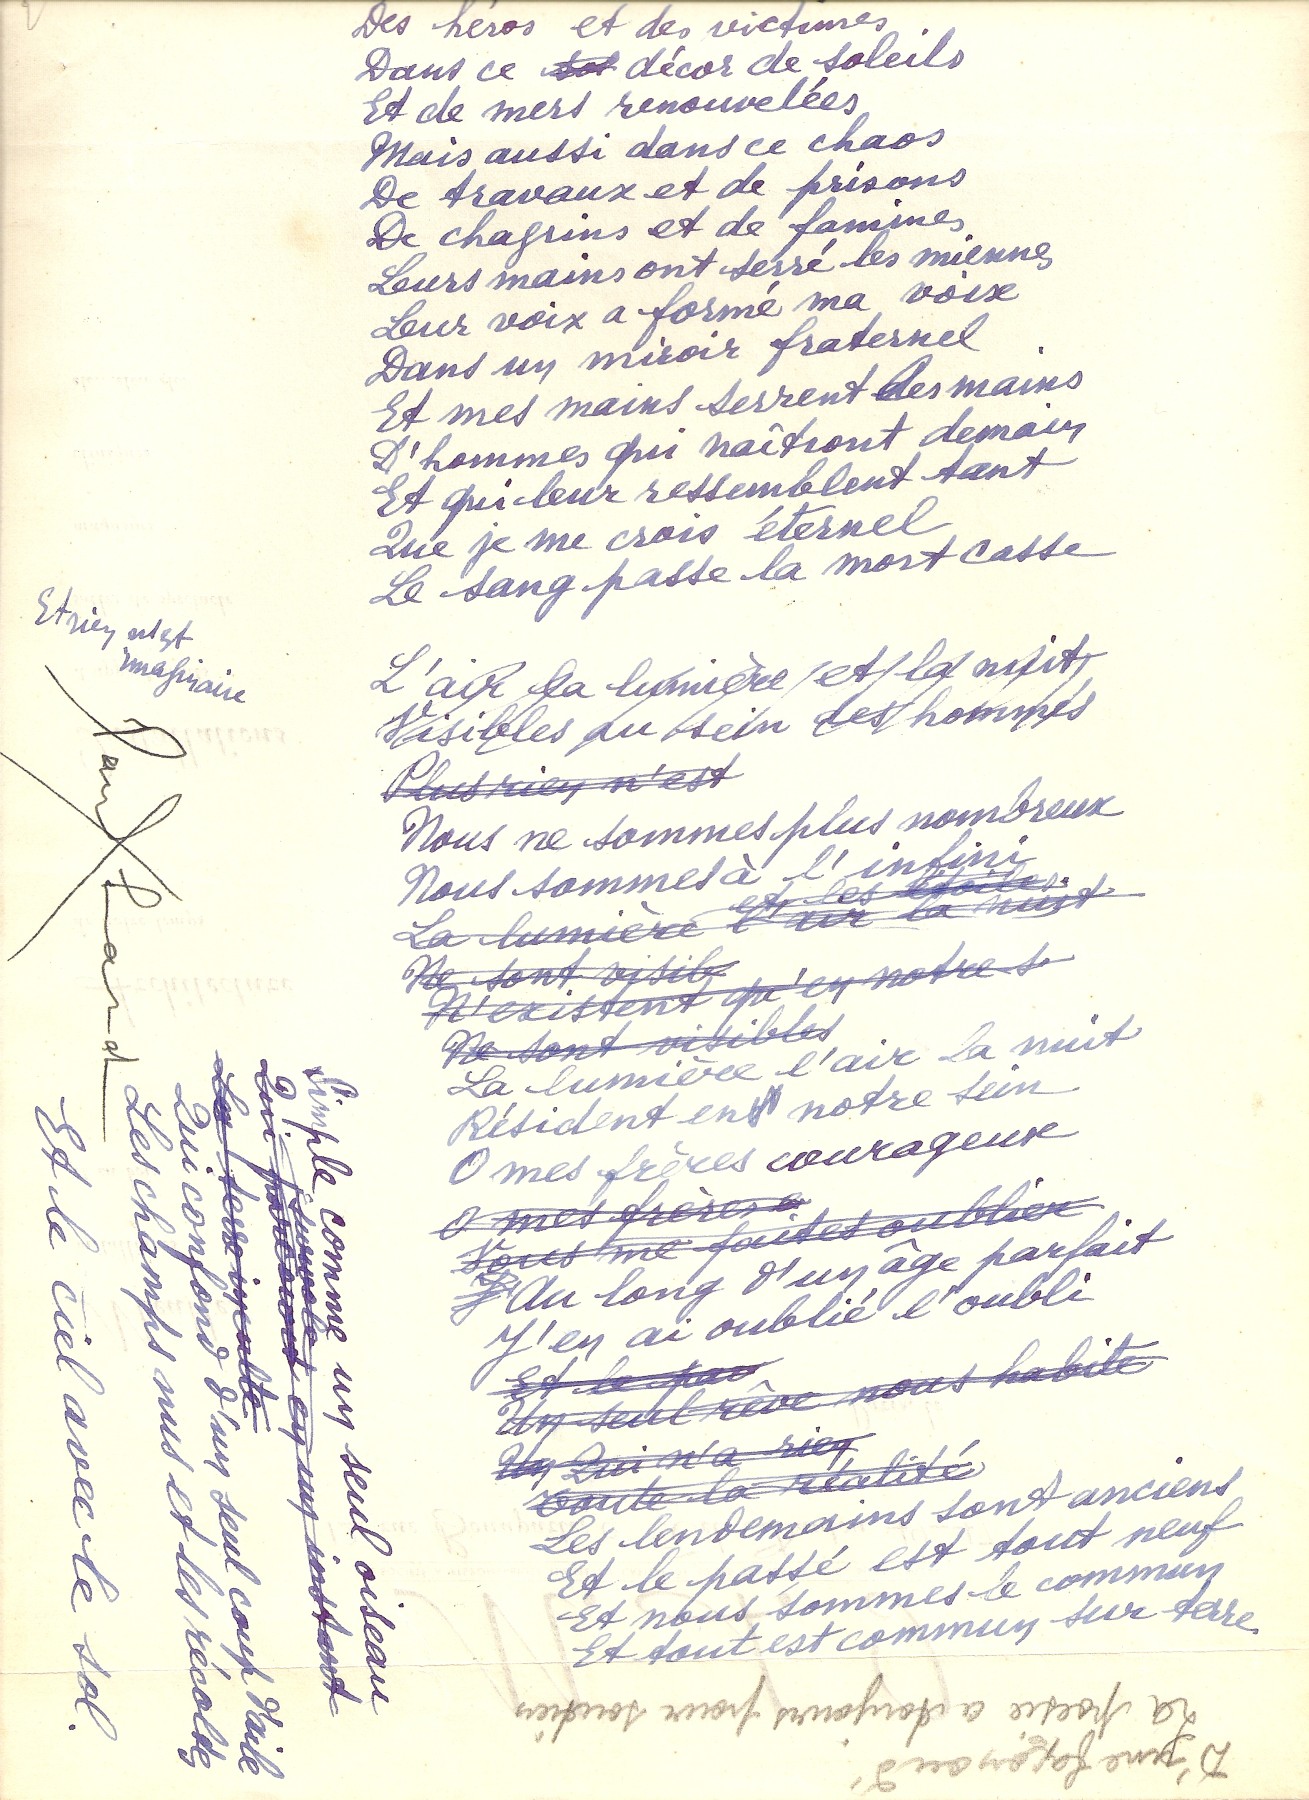 Des héros et des victimes
Dans ce sol décor de soleils
Et de mers renouvelées
Mais aussi dans ce chaos
De travaux et de prisons
De chagrins et de famines
Leurs mains ont serré les miennes
Leur voix a formé ma voix
Dans un miroir fraternel
Et mes mains serrent les mains
D'hommes qui naîtront demain
Et qui leur ressemblent tant
Que je me crois éternel
Le sang passe la mort casse
L'air la lumière et la nuit
Visibles au sein des hommes
Plus rien n'est
Nous ne sommes plus nombreux
Nous sommes à l'infini
et les étoiles
La lumière l'air la nuit
Ne sont visib
N'existent qu'en notre s
Ne sont visibles
La lumière l'air la nuit
Résident en notre sein
O mes frères courageux
O mes frères
Vous me faites oublier
Au long d'un âge parfait
J'en ai oublié l'oubli
Et le pas
Un seul rêve nous habite
Un Qui n'a rien
toute la réalité
Les lendemains sont anciens
Et le passé est tout neuf
Et nous sommes le commun
Et tout est commun sur terre
Simple comme un seul oiseau
survole
Qui parcourt en un instant
La terre inculte
Qui confond d'un seul coup d'aile
Les champs nus et les récoltes
Et le ciel avec le sol.
Et rien n'est
imaginaire
Paul Eluard
D'une façon ou d'
La poésie a toujours pour soutien